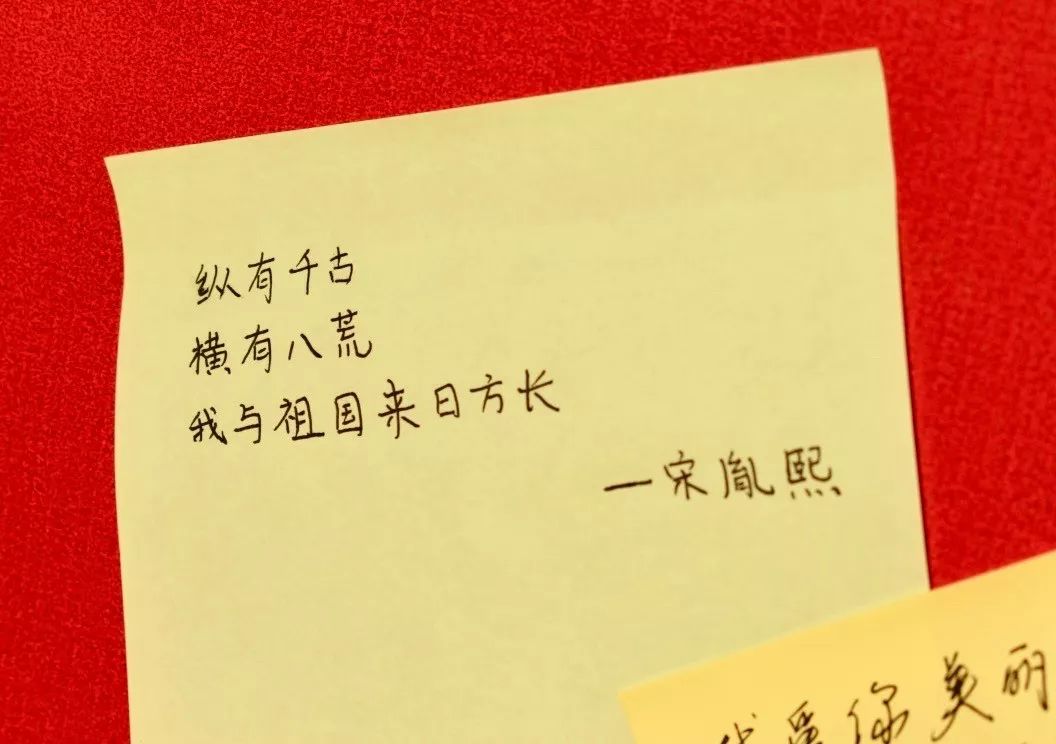 纵有千古
横有八荒
我与祖国来日方长
—宋胤熙
我爱你美丽